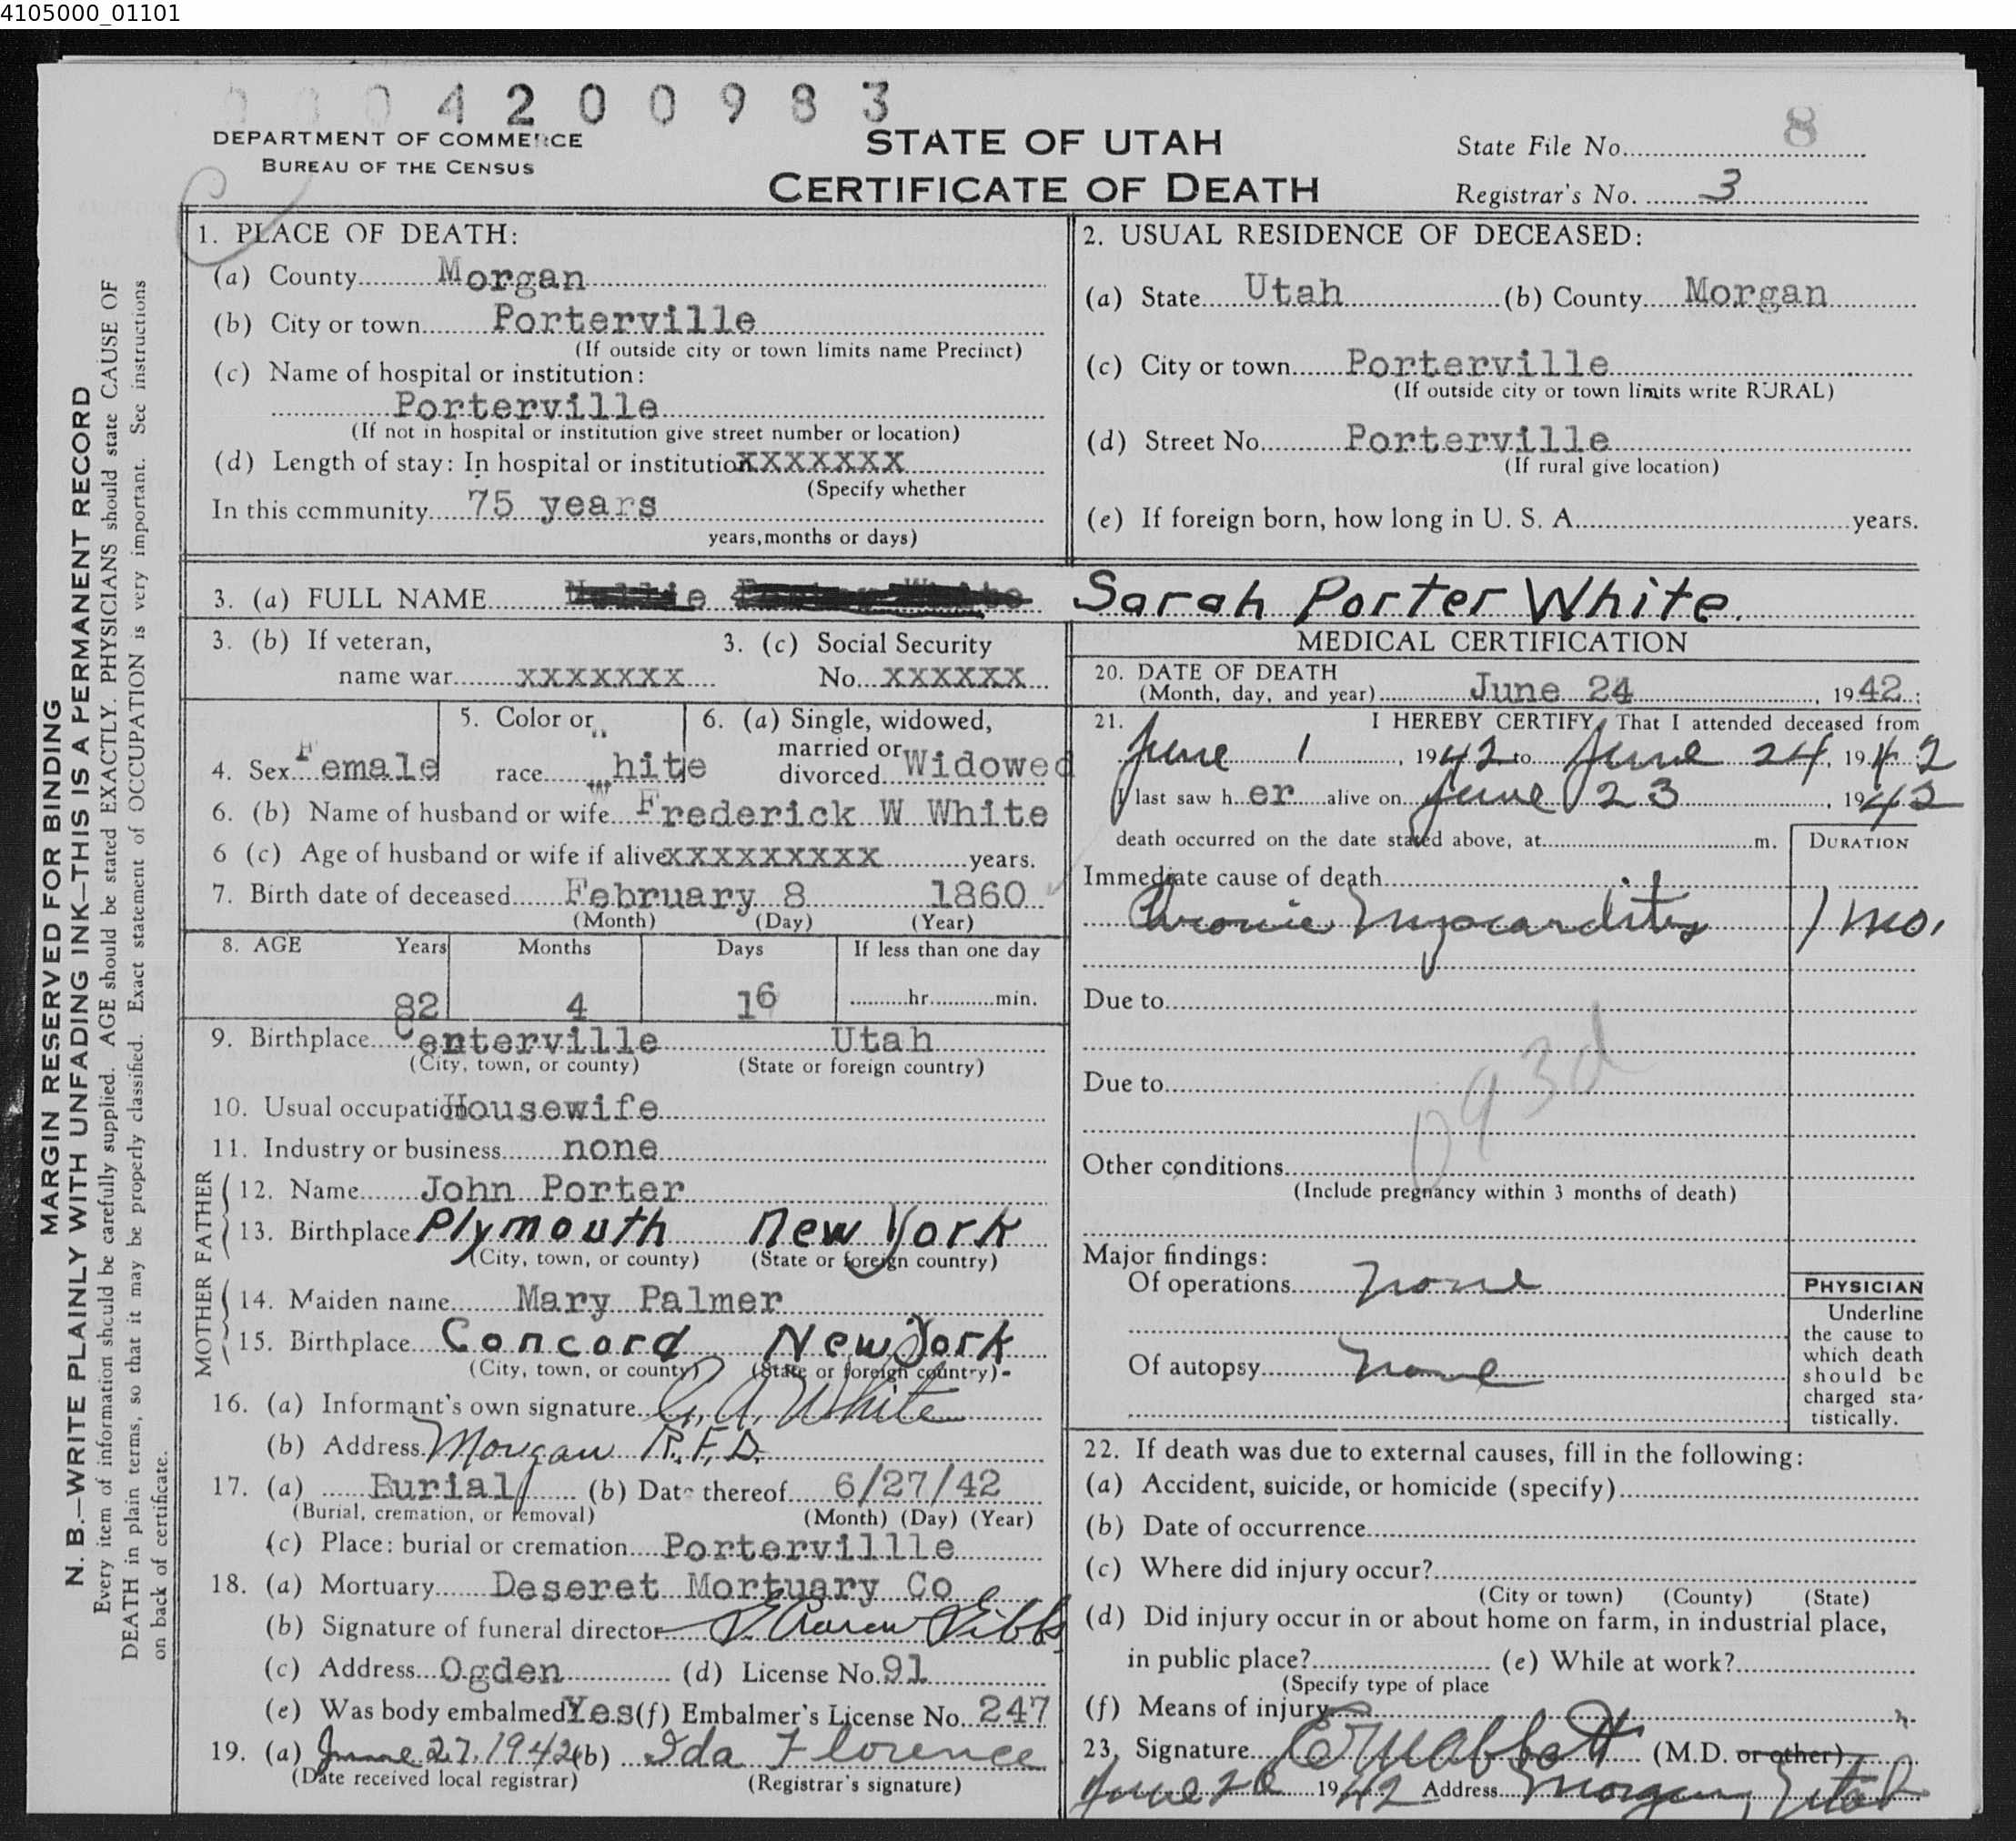 4105000_01101
4200983
DEPARTMENT OF COMMERCE
BUREAU OF THE CENSUS
STATE OF UTAH
CERTIFICATE OF DEATH
State File No. 8
Registrar's No. 3
MARGIN RESERVED FOR BINDING
N. B.—WRITE PLAINLY WITH UNFADING INK—THIS IS A PERMANENT RECORD
Every item of information should be carefully supplied. AGE should be stated EXACTLY. PHYSICIANS should state CAUSE OF
DEATH in plain terms, so that it may be properly classified. Exact statement of OCCUPATION is very important. See instructions
on back of certificate.
1. PLACE OF DEATH:
(a) County Morgan
(b) City or town Porterville
(If outside city or town limits name Precinct)
(c) Name of hospital or institution:
Porterville
(If not in hospital or institution give street number or location)
(d) Length of stay: In hospital or institution XXXXXXX
(Specify whether
In this community 75 years
years, months or days)
2. USUAL RESIDENCE OF DECEASED:
(a) State Utah (b) County Morgan
(c) City or town Porterville
(If outside city or town limits write RURAL)
(d) Street No. Porterville
(If rural give location)
(e) If foreign born, how long in U. S. A. years.
3. (a) FULL NAME Sarah Porter White.
3. (b) If veteran,
name war xxxxxxx
3. (c) Social Security
No. XXXXXX
4. Sex Female
5. Color or
race white
6. (a) Single, widowed,
married or
divorced Widowed
6. (b) Name of husband or wife Frederick W White
6 (c) Age of husband or wife if alive XXXXXXXXX years.
7. Birth date of deceased February 8 1860
(Month) (Day) (Year)
8. AGE Years Months Days If less than one day
82 4 16 hr. min.
9. Birthplace Centerville Utah
(City, town, or county) (State or foreign country)
10. Usual occupation Housewife
11. Industry or business none
FATHER
12. Name John Porter
13. Birthplace Plymouth New York
(City, town, or county) (State or foreign country)
MOTHER
14. Maiden name Mary Palmer
15. Birthplace Concord New York
(City, town, or county) (State or foreign country)
16. (a) Informant's own signature White
(b) Address Morgan R.F.D.
17. (a) Burial (b) Date thereof 6/27/42
(Burial, cremation, or removal) (Month) (Day) (Year)
(c) Place: burial or cremation Portervillle
18. (a) Mortuary Deseret Mortuary Co
(b) Signature of funeral director
(c) Address Ogden (d) License No. 91
(e) Was body embalmed Yes (f) Embalmer's License No. 247
19. (a) June 27, 1942 (b) Ida Florence
(Date received local registrar) (Registrar's signature)
MEDICAL CERTIFICATION
20. DATE OF DEATH
(Month, day, and year) June 24, 1942;
21. I HEREBY CERTIFY, That I attended deceased from
June 1, 1942 to June 24, 1942
I last saw her alive on June 23, 1942
death occurred on the date stated above, at m.
DURATION
Immediate cause of death
Chronic Myocarditis 1 mo.
Due to
Due to
093d
Other conditions
(Include pregnancy within 3 months of death)
Major findings:
Of operations none
Of autopsy none
PHYSICIAN
Underline
the cause to
which death
should be
charged sta-
tistically.
22. If death was due to external causes, fill in the following:
(a) Accident, suicide, or homicide (specify)
(b) Date of occurrence
(c) Where did injury occur?
(City or town) (County) (State)
(d) Did injury occur in or about home on farm, in industrial place,
in public place? (e) While at work?
(Specify type of place
(f) Means of injury
23. Signature (M.D. or other)
June 1942 Address Morgan, Utah